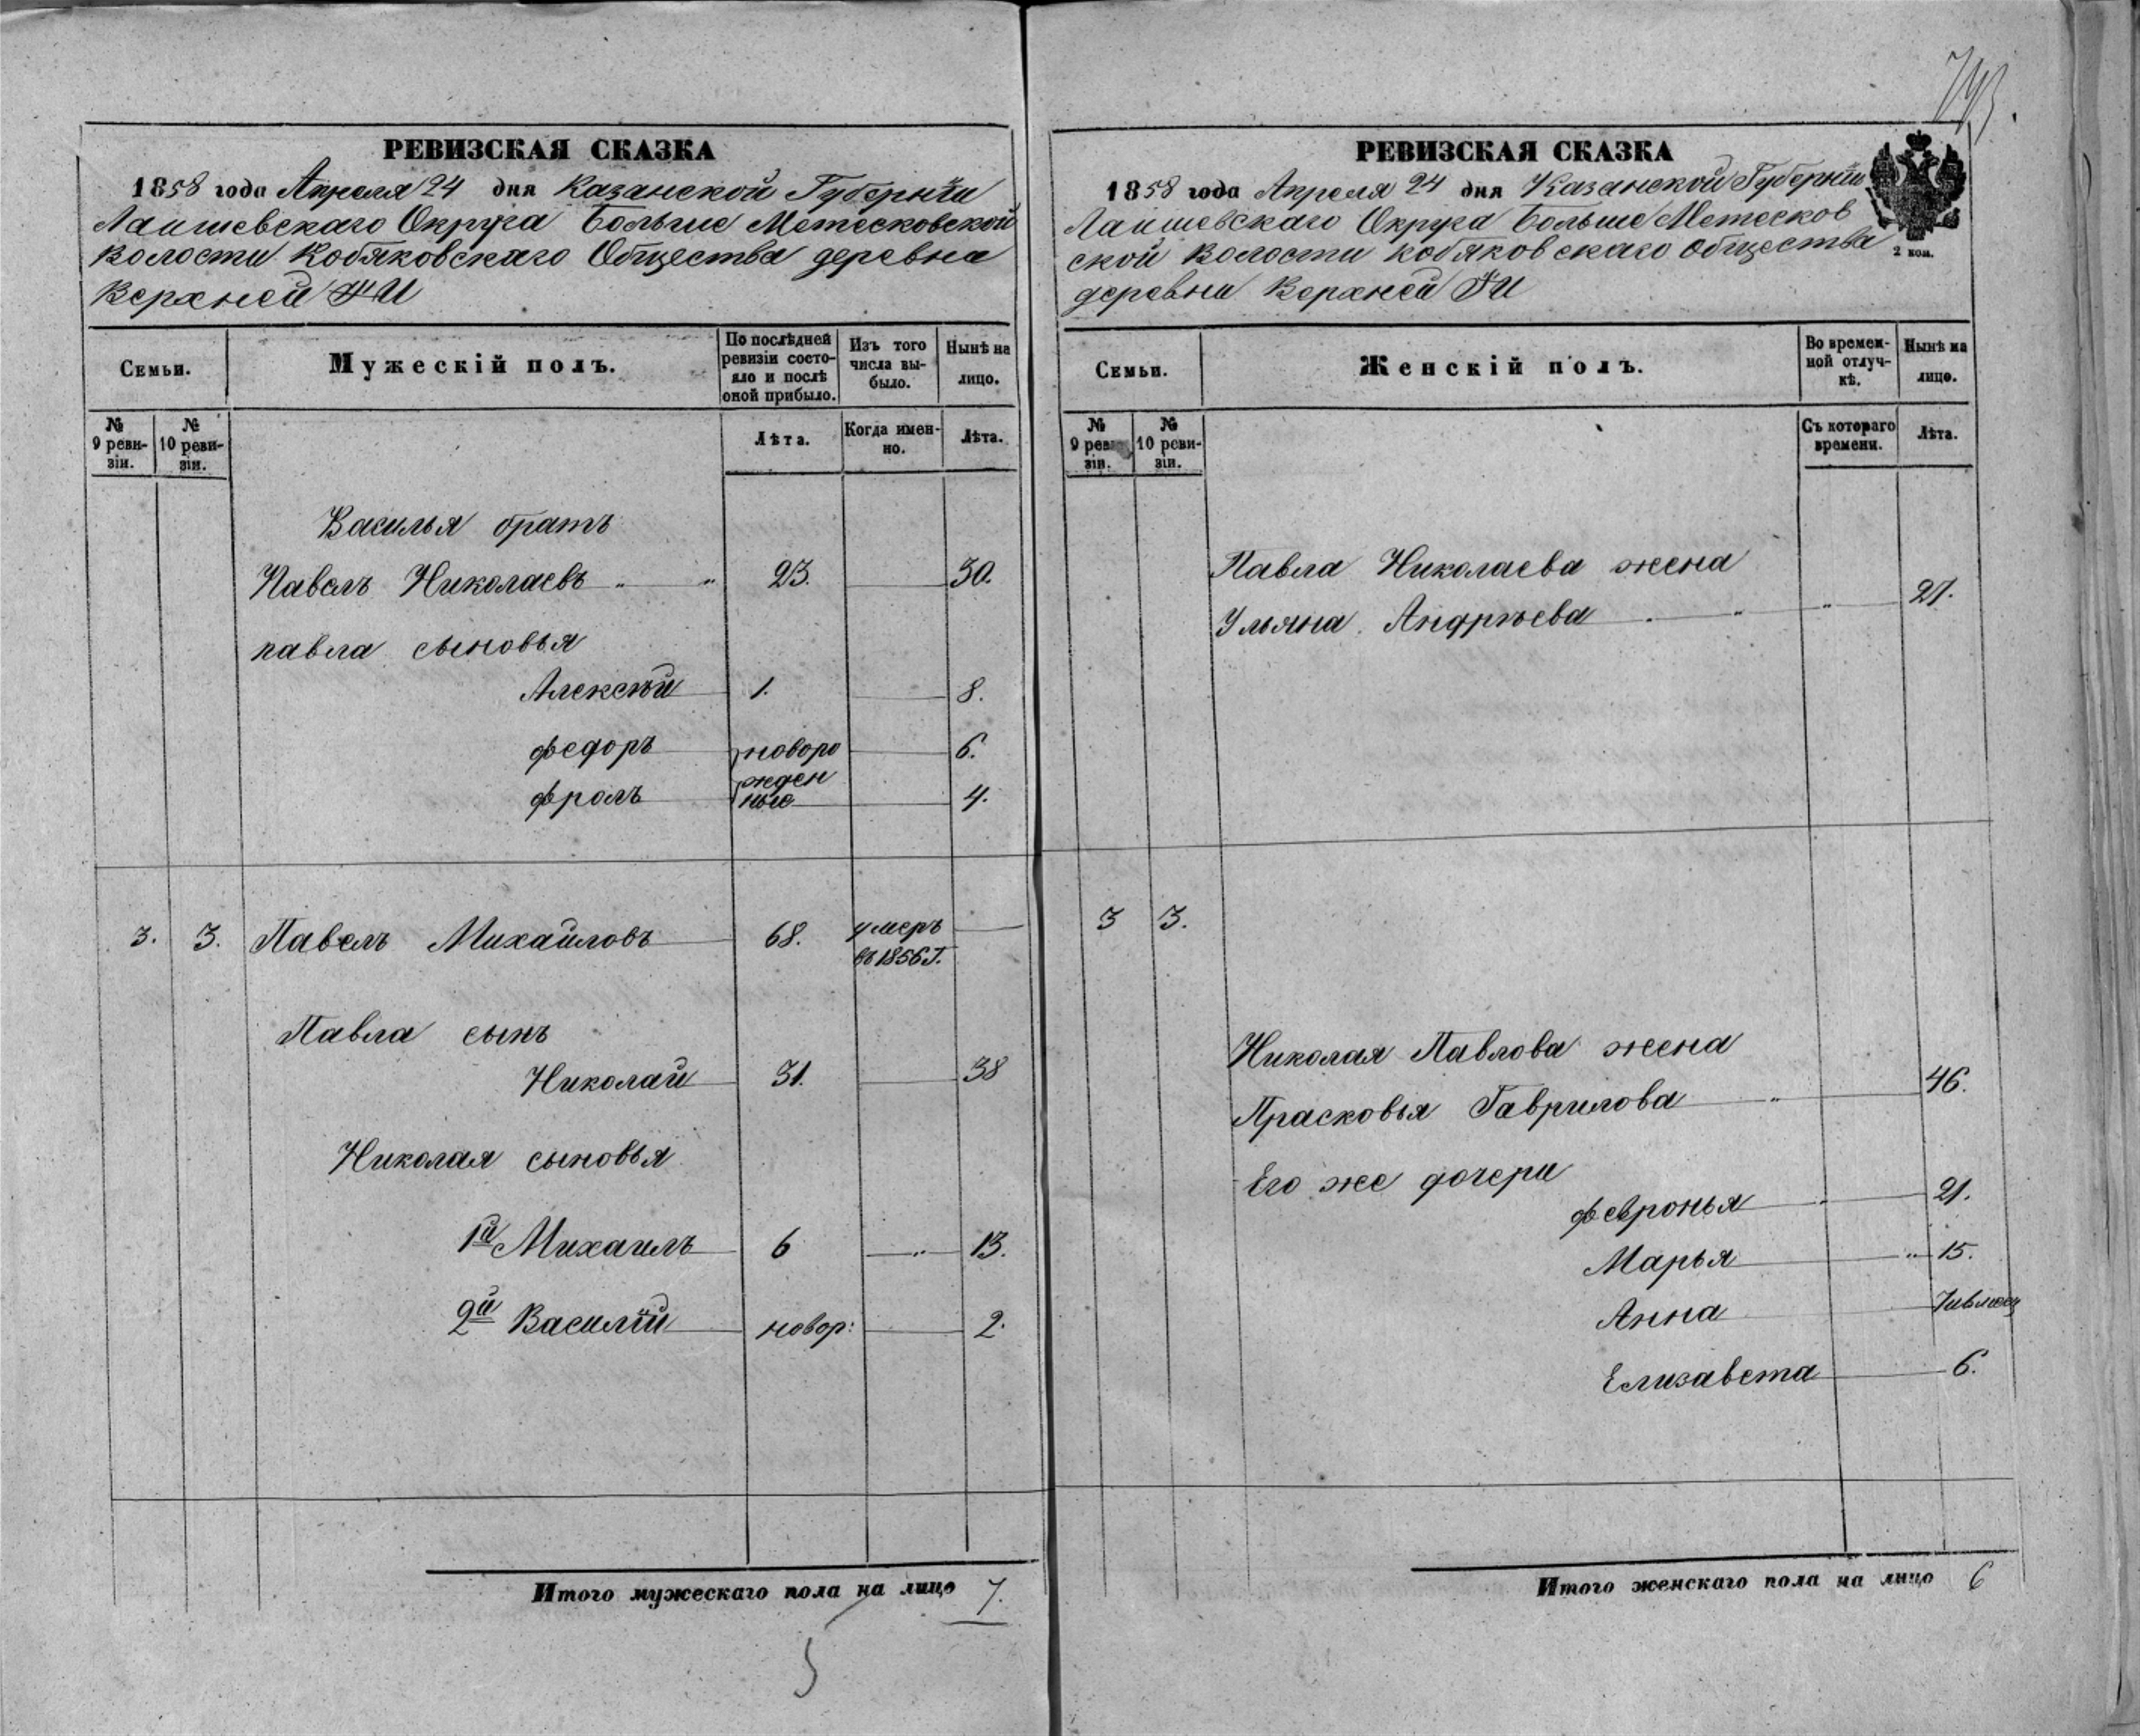 РЕВИЗСКАЯ СКАЗКА
1858 года Апреля 24 дня Казанской Губерніи
Лаишевскаго Округа Больше Метесковской
волости Кобяковскаго Общества деревна
Верхней
Семьи.
Мужескій полъ.
По послѣдней ревизіи состояло и послѣ оной прибыло.
Изъ того числа выбыло.
Нынѣ на лицо.
№ 9 ревизіи.
№ 10 ревизіи.
Лѣта.
Когда именно.
Лѣта.
Василья братъ
Павелъ Николаевъ „ „ 23. 30.
павла сыновья
Алексѣй 1. 8.
федоръ новоро 6.
жден
фролъ ные 4.
3. 3. Павелъ Михайловъ 68. умеръ
въ 1856 г.
Павла сынъ
Николай 31. 38
Николая сыновья
1й Михаилъ 6 „ 13.
2й Василій новор: 2.
Итого мужескаго пола на лицо 7.
5
РЕВИЗСКАЯ СКАЗКА
1858 года Апреля 24 дня Казанской Губерніи
Лаишевскаго Округа Больше Метесков
ской Волости кобяковскаго общества
деревни Верхней
2 коп.
Семьи.
Женскій полъ.
Во временной отлучкѣ.
Нынѣ на лицо.
№ 9 ревизіи.
№ 10 ревизіи.
Съ котораго времени.
Лѣта.
Павла Николаева жена
Ульяна Андрѣева „ „ 27.
3 3.
Николая Павлова жена
Прасковья Гаврилова „ 46.
Его же дочери
февронья „ 21.
Марья „ 15.
Анна
Елизавета 6.
Итого женскаго пола на лицо 6